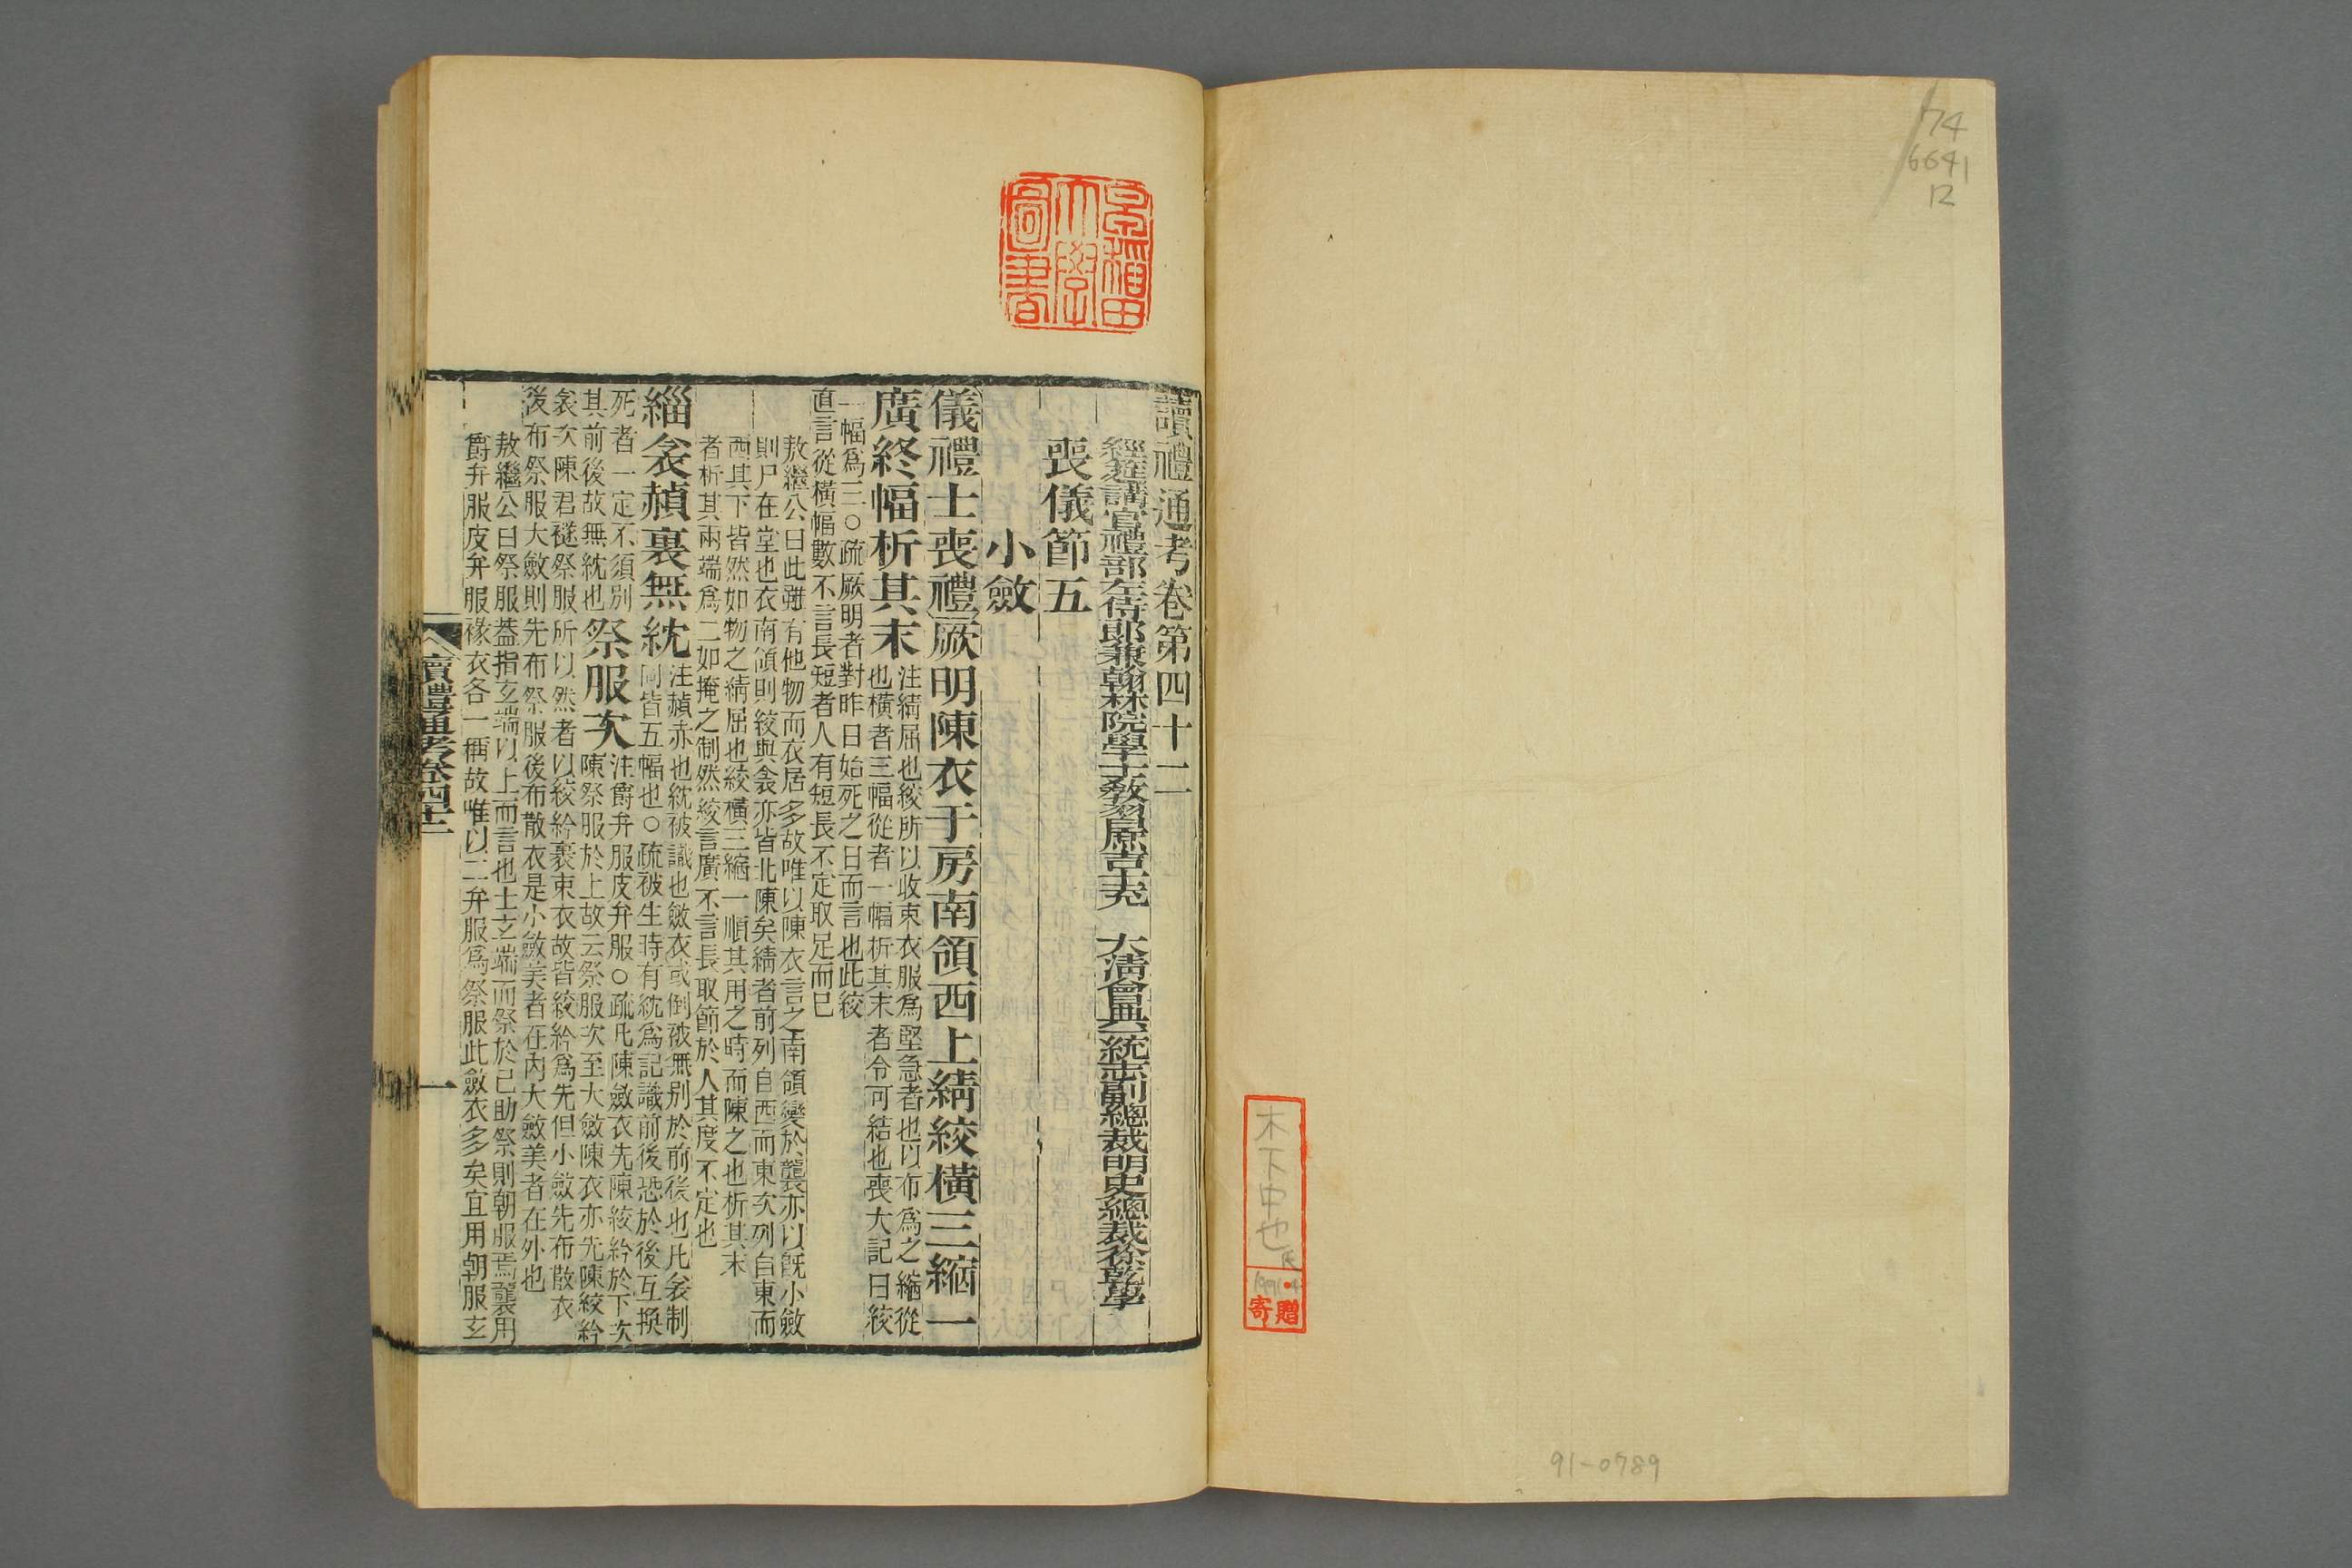 74
6641
12
木下中也氏
寄贈
91-0789
早稲田大學圖書
讀禮通考卷第四十二
經筵講官禮部左侍郎兼翰林院學士敎習庶吉士充 大淸會典一統志副總裁明史總裁徐乾學
喪儀節五
小斂
儀禮士喪禮厥明陳衣于房南領西上綪絞橫三縮一
廣終幅析其末
注綪屈也絞所以收束衣服爲堅急者也以布爲之縮從
也橫者三幅從者一幅析其末者令可結也喪大記曰絞
一幅爲三○疏厥明者對昨日始死之日而言也此絞
直言從橫幅數不言長短者人有短長不定取足而已
敖繼公曰此雖有他物而衣居多故唯以陳衣言之南領變於襲亦以旣小斂
則尸在堂也衣南領則絞與衾亦皆北陳矣綪者前列自西而東次列自東而
西其下皆然如物之綪屈也絞橫三縮一順其用之時而陳之也析其末
者析其兩端爲二如掩之制然絞言廣不言長取節於人其度不定也
緇衾赬裏無紞
注赬赤也紞被識也斂衣或倒被無別於前後也凡衾制
同皆五幅也○疏被生時有紞爲記識前後恐於後互換
死者一定不須別
其前後故無紞也
祭服次
注爵弁服皮弁服○疏凡陳斂衣先陳絞紟於下次
陳祭服於上故云祭服次至大斂陳衣亦先陳絞紟
衾次陳君襚祭服所以然者以絞紟裹束衣故皆絞紟爲先但小斂先布散衣
後布祭服大斂則先布祭服後布散衣是小斂美者在內大斂美者在外也
敖繼公曰祭服蓋指玄端以上而言也士玄端而祭於已助祭則朝服焉襲用
爵弁服皮弁服褖衣各一稱故唯以二弁服爲祭服此斂衣多矣宜用朝服玄
讀禮通考卷四十二
一